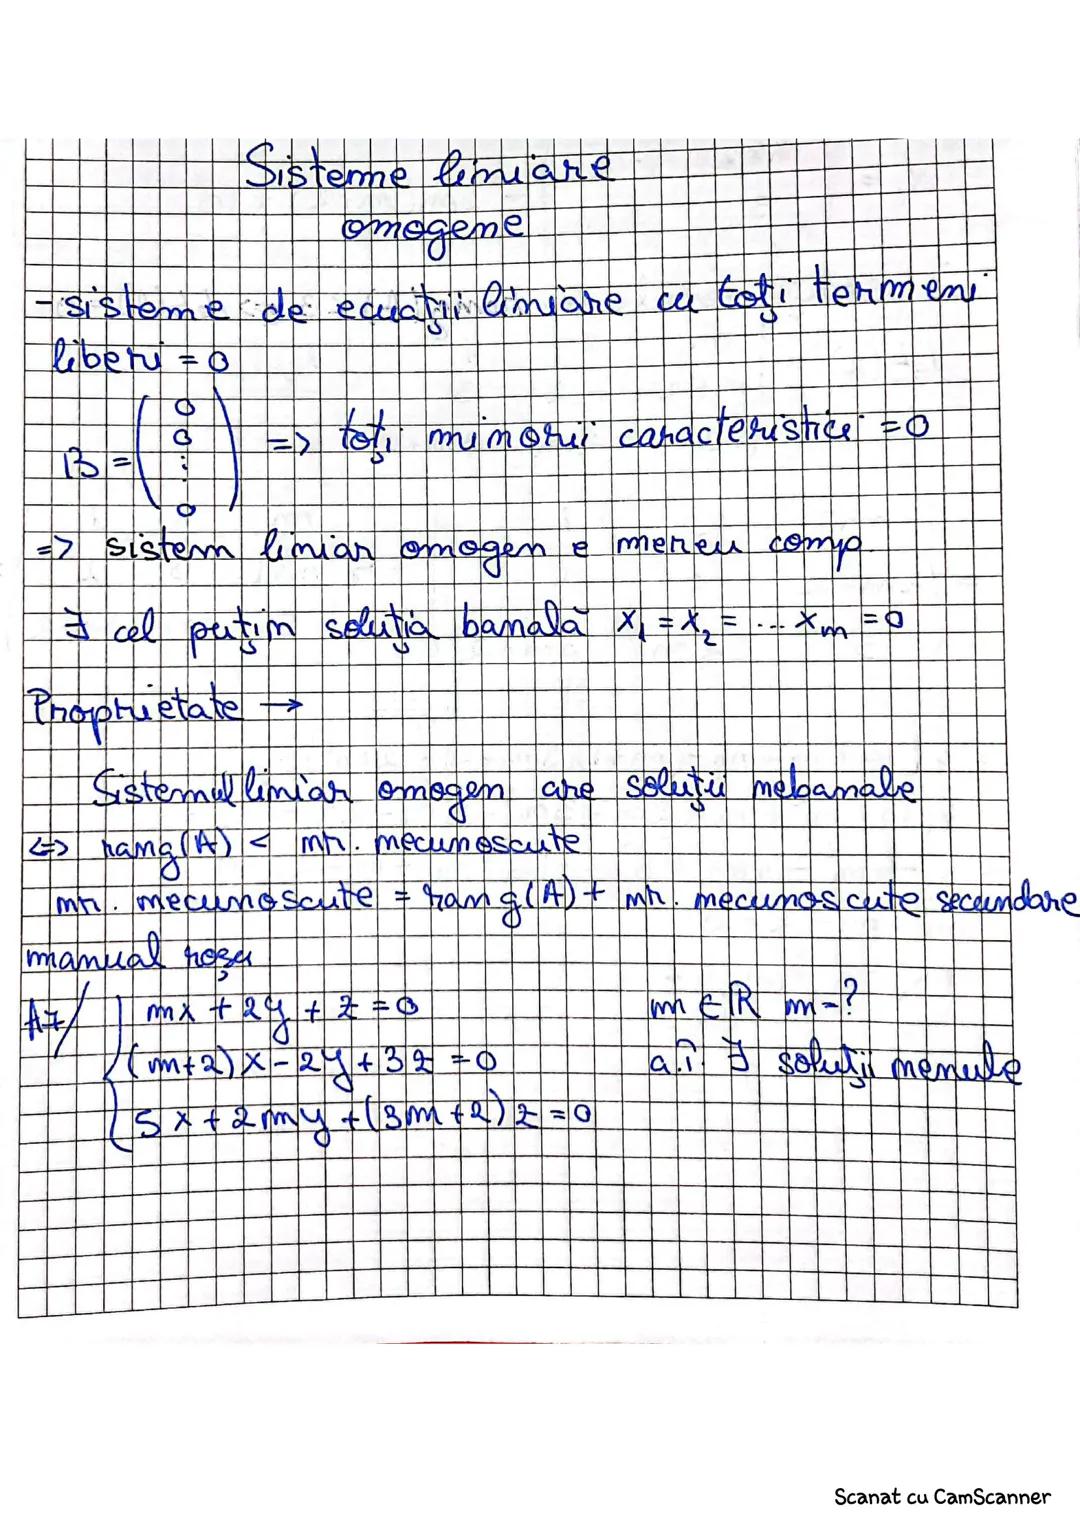 Sisteme liniare
omogene
- sisteme de ecuații liniare cu toți termeni
liberi = 0
B = ( 0 0 ⋮ 0 ) => toți minorii caracteristici = 0
=> sistem liniar omogen e mereu comp.
∃ cel puțin soluția banală x₁ = x₂ = ... xₙ = 0
Proprietate →
Sistemul liniar omogen are soluții nebanale
<=> rang(A) < nr. necunoscute
nr. necunoscute = rang(A) + nr. necunoscute secundare
manual roșu
A7/ { mx + 2y + z = 0 m ∈ ℝ m = ?
(m+2)x - 2y + 3z = 0 a.î. ∃ soluții nenule
5x + 2my + (3m+2)z = 0
Scanat cu CamScanner